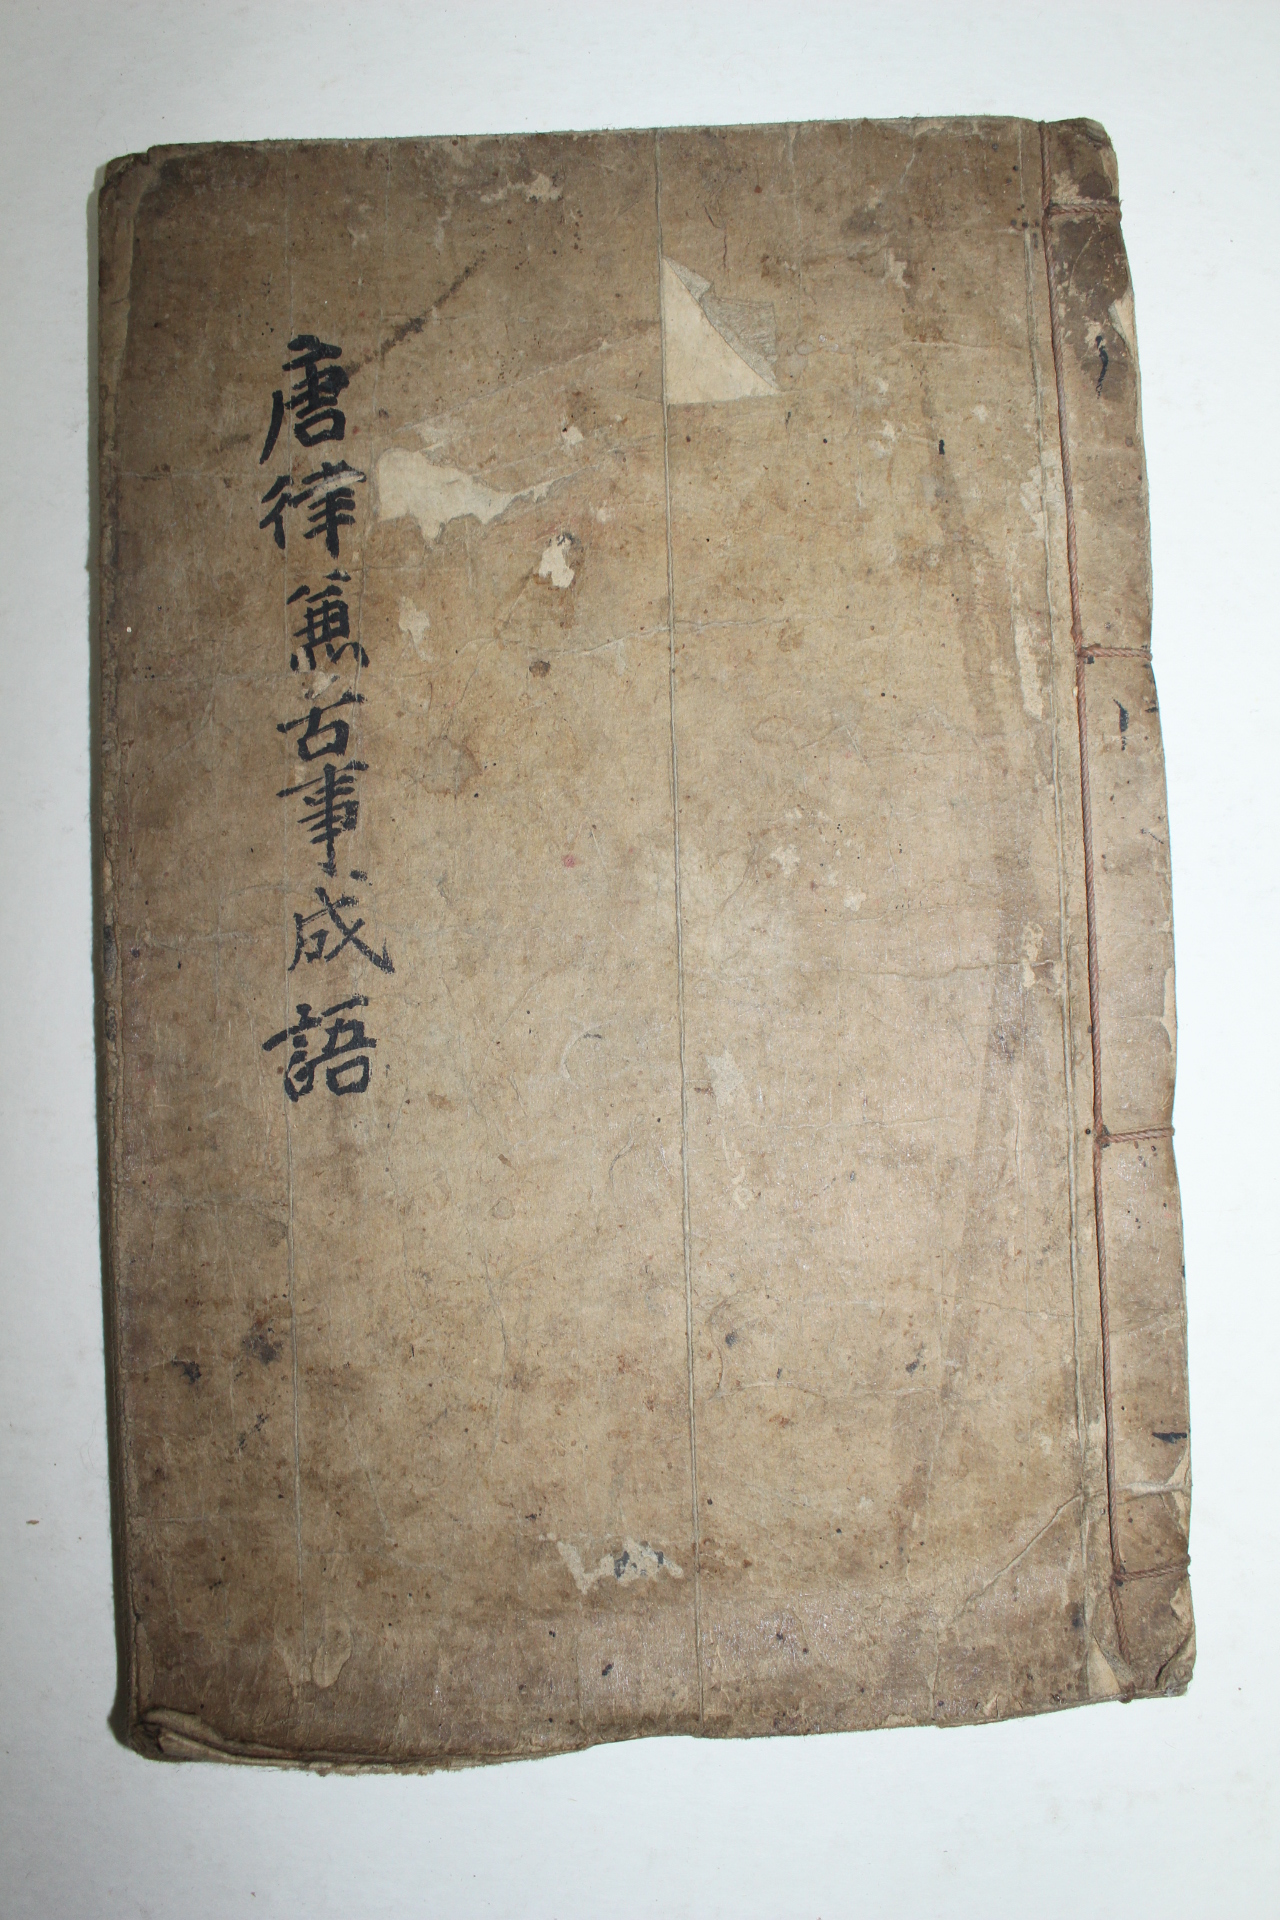 唐律兼古事成語